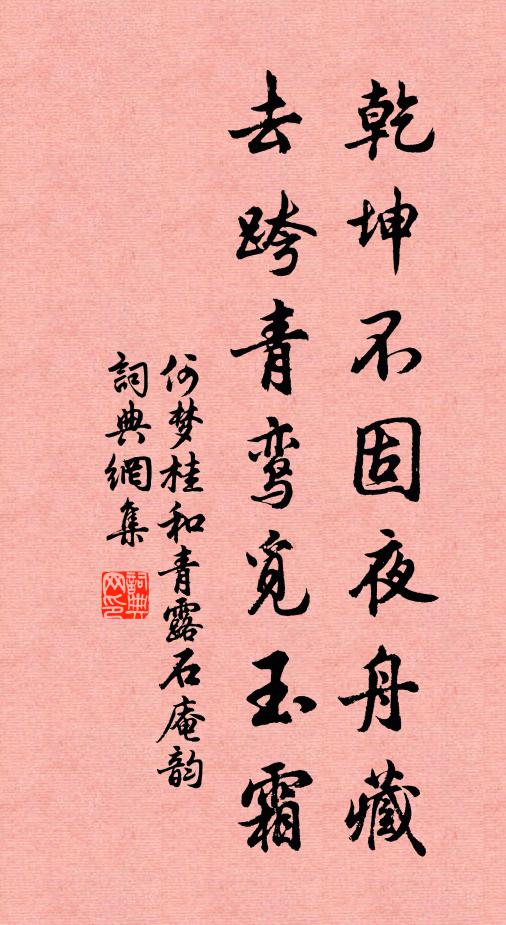 乾坤不固夜舟藏
去跨青鸾觅玉霜
何梦桂和青露石庵韵
詞典網集
詞典网印